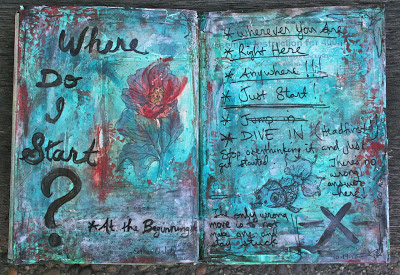 Where
Do
I
Start
?
*At the Beginning
* Wherever You Are
* Right Here
* Anywhere!!!
* Just Start!
* Jump in
* DIVE IN (Headfirst!)
Stop overthinking it and just
get started
There's no
wrong
answers
here!
The only wrong
move is to not
make one and
stay stuck
X